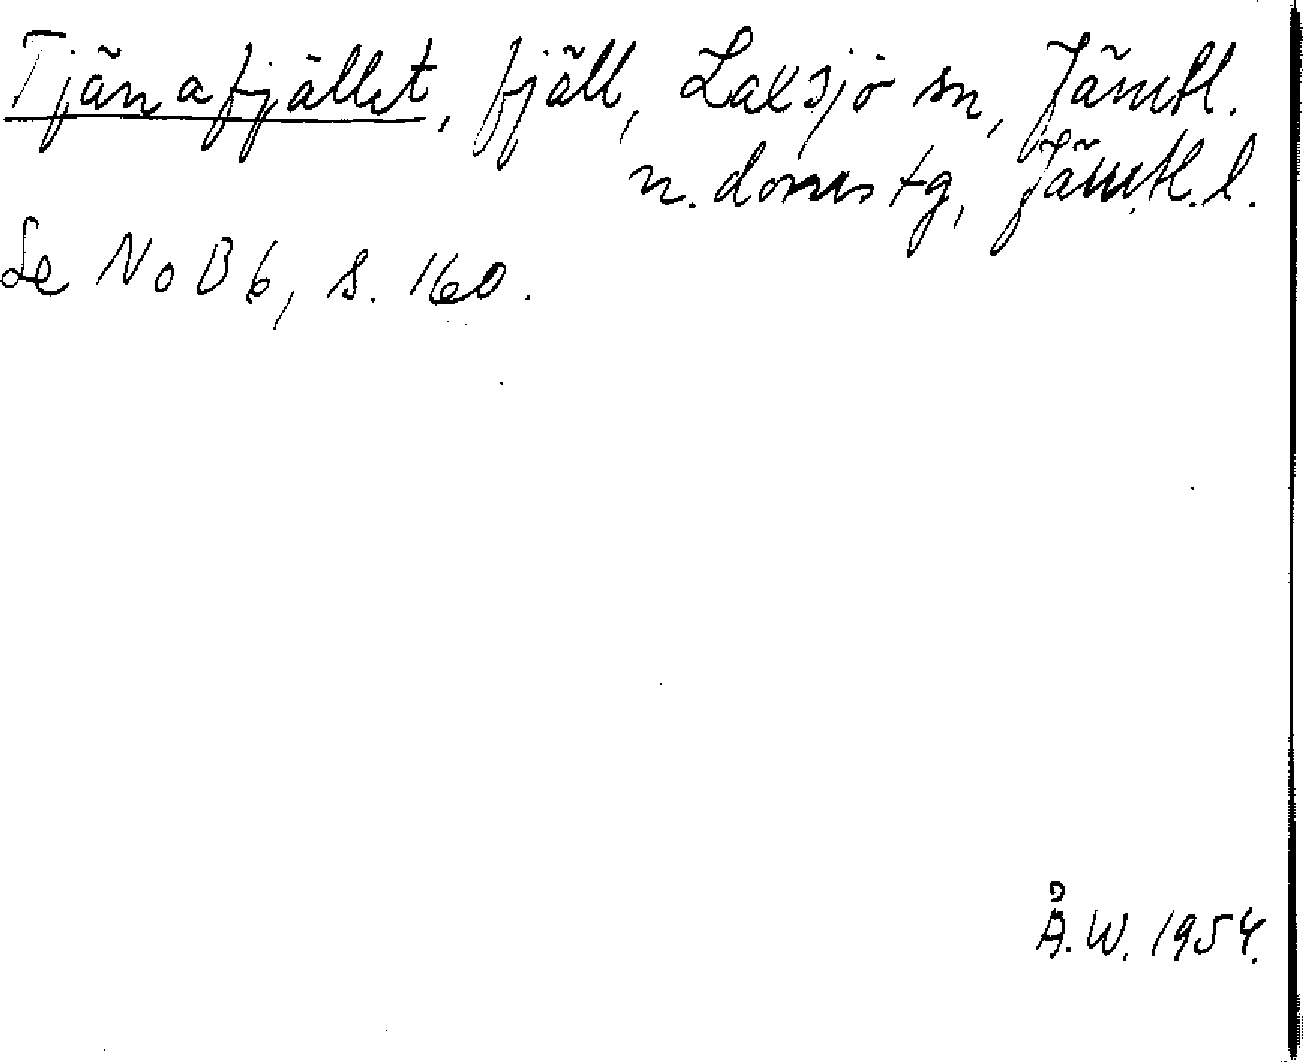 Tjänafjället, fjäll, Laxsjö sn, Jämtl.
n. domstg, Jämtl. l.
Se NoB 6, s. 160.
Å.W. 1954.